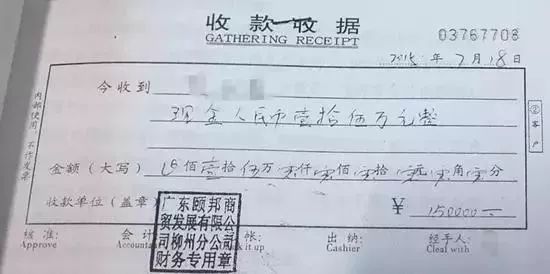 收款收据
GATHERING RECEIPT
03767708
年 2月18日
今收到
现金人民币壹拾伍万元整
金额（大写） 佰壹拾伍万零仟零佰零拾零元零角零分
收款单位（盖章）
¥ 150000—
广东颐邦商
贸发展有限公
司柳州分公司
财务专用章
核准: 会计 帐: 出纳: 经手人:
Approve Accountant k it up Cashier Cleal with
内部使用 不作发票
②客户